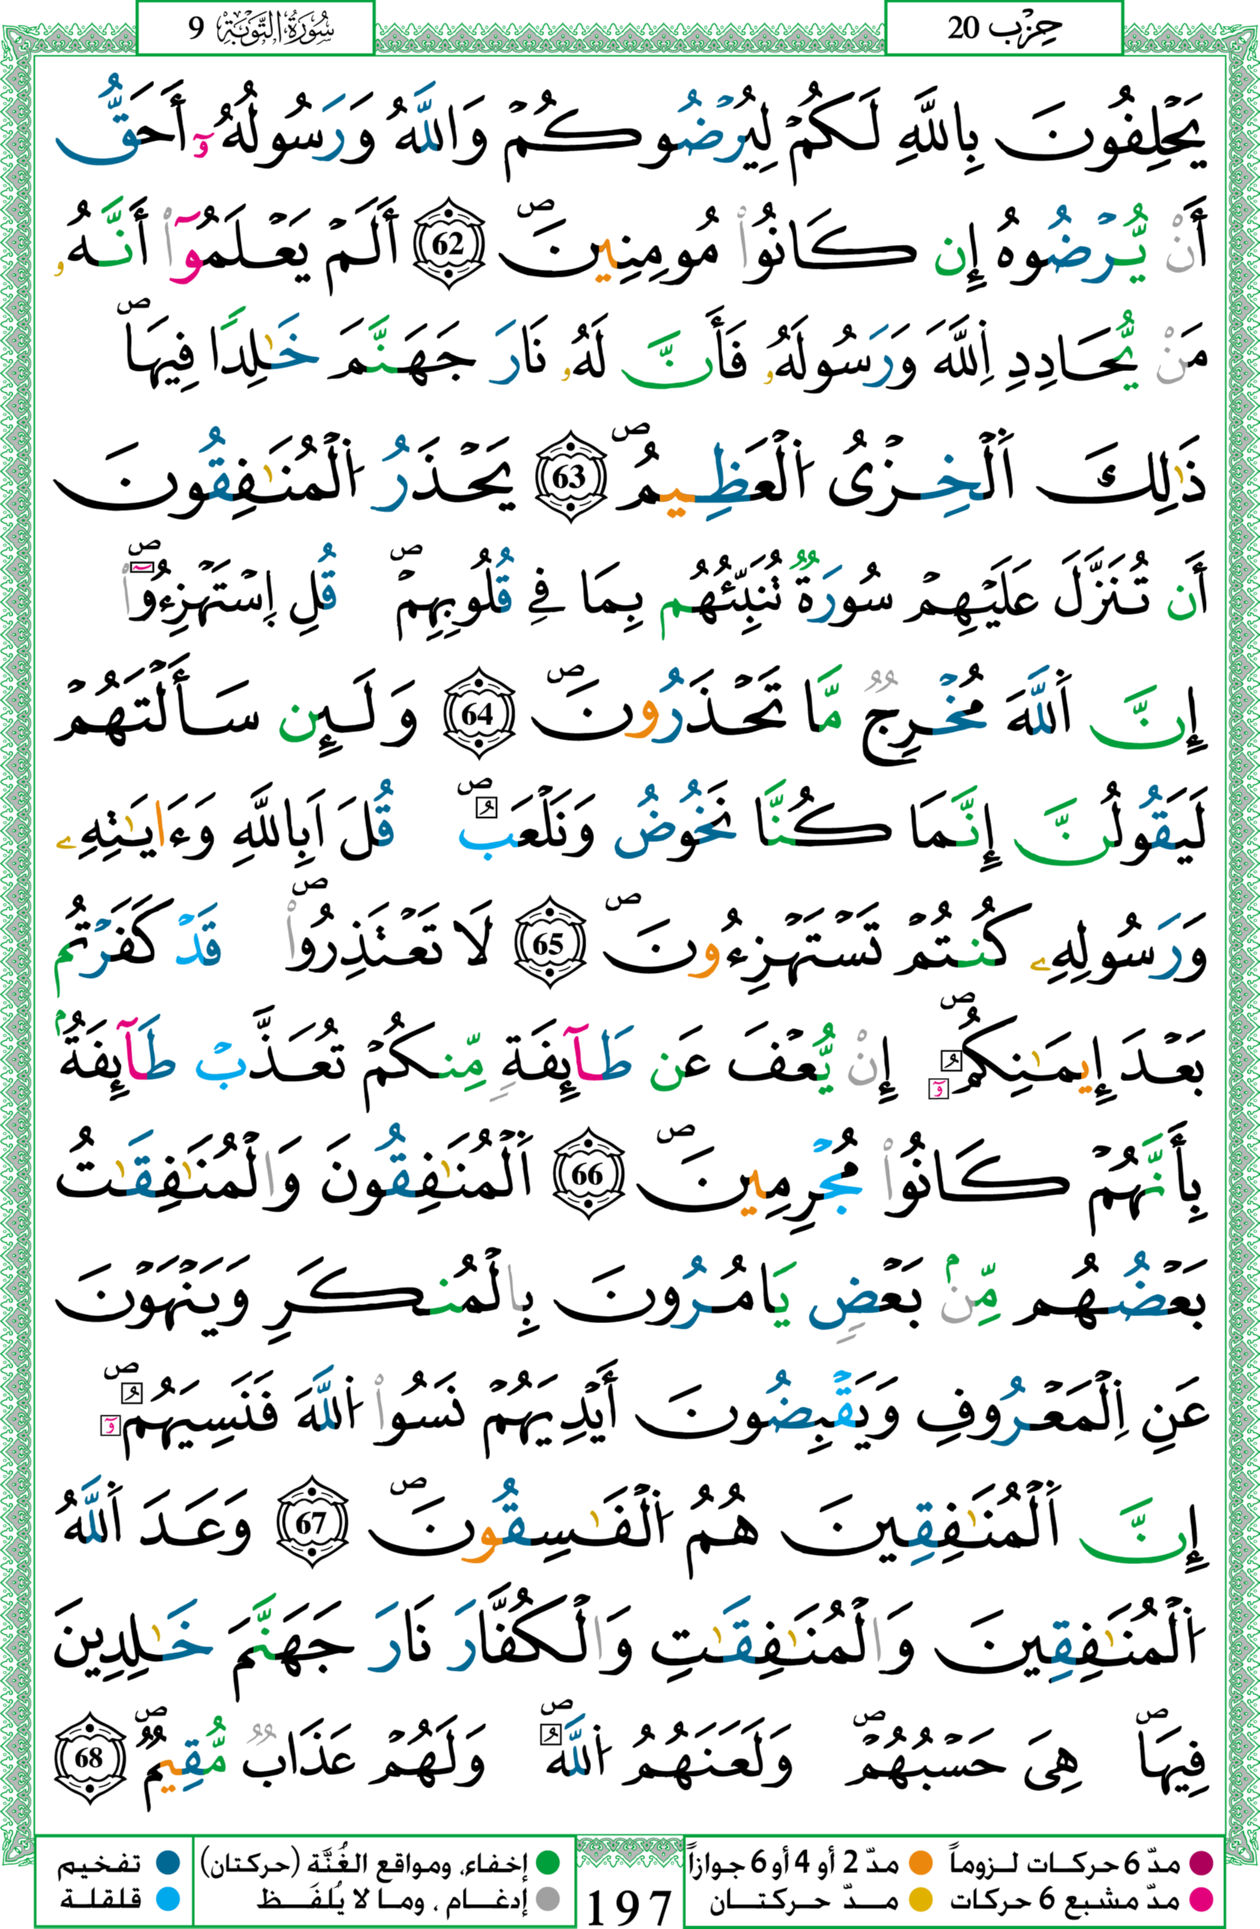 حِزْب 20
سُورَةُ التَّوْبَة 9
يَحْلِفُونَ بِاللَّهِ لَكُمْ لِيُرْضُوكُمْ وَاللَّهُ وَرَسُولُهُۥٓ أَحَقُّ
أَنْ يُّرْضُوهُ إِن كَانُواْ مُومِنِينَۖ 62 أَلَمْ يَعْلَمُوٓاْ أَنَّهُۥ
مَنْ يُّحَادِدِ اِللَّهَ وَرَسُولَهُۥ فَأَنَّ لَهُۥ نَارَ جَهَنَّمَ خَٰلِداً فِيهَاۖ
ذَٰلِكَ اَلْخِزْىُ اُلْعَظِيمُۖ 63 يَحْذَرُ اُلْمُنَٰفِقُونَ
أَن تُنَزَّلَ عَلَيْهِمْ سُورَةٌ تُنَبِّئُهُم بِمَا فِے قُلُوبِهِمْۖ قُلِ اِسْتَهْزِءُوٓاْۖ
إِنَّ اَللَّهَ مُخْرِجٌ مَّا تَحْذَرُونَۖ 64 وَلَئِن سَأَلْتَهُمْ
لَيَقُولُنَّ إِنَّمَا كُنَّا نَخُوضُ وَنَلْعَبُۖ قُلَ اَبِاللَّهِ وَءَايَٰتِهِۦ
وَرَسُولِهِۦ كُنتُمْ تَسْتَهْزِءُونَۖ 65 لَا تَعْتَذِرُواْۖ قَدْ كَفَرْتُم
بَعْدَ إِيمَٰنِكُمُۥٓۖ إِنْ يُّعْفَ عَن طَآئِفَةٍ مِّنكُمْ تُعَذَّبْ طَآئِفَةُۢ
بِأَنَّهُمْ كَانُواْ مُجْرِمِينَۖ 66 اَلْمُنَٰفِقُونَ وَالْمُنَٰفِقَٰتُ
بَعْضُهُم مِّنۢ بَعْضٍ يَامُرُونَ بِالْمُنكَرِ وَيَنْهَوْنَ
عَنِ اِلْمَعْرُوفِ وَيَقْبِضُونَ أَيْدِيَهُمْ نَسُواْ اُللَّهَ فَنَسِيَهُمُۥٓۖ
إِنَّ اَلْمُنَٰفِقِينَ هُمُ اُلْفَٰسِقُونَۖ 67 وَعَدَ اَللَّهُ
اُلْمُنَٰفِقِينَ وَالْمُنَٰفِقَٰتِ وَالْكُفَّارَ نَارَ جَهَنَّمَ خَٰلِدِينَ
فِيهَاۖ هِىَ حَسْبُهُمْۖ وَلَعَنَهُمُ اُللَّهُۖ وَلَهُمْ عَذَابٌ مُّقِيمٌۖ 68
مدّ 6 حركات لـزوماً مدّ 2 أو 4 أو 6 جوازاً إخفاء، ومواقع الغُنَّة (حركتان) تفخيم
مدّ مشبع 6 حركات مــدّ حــركتــان إدغــام ، ومـا لا يُلفَــظ قلقلة
197